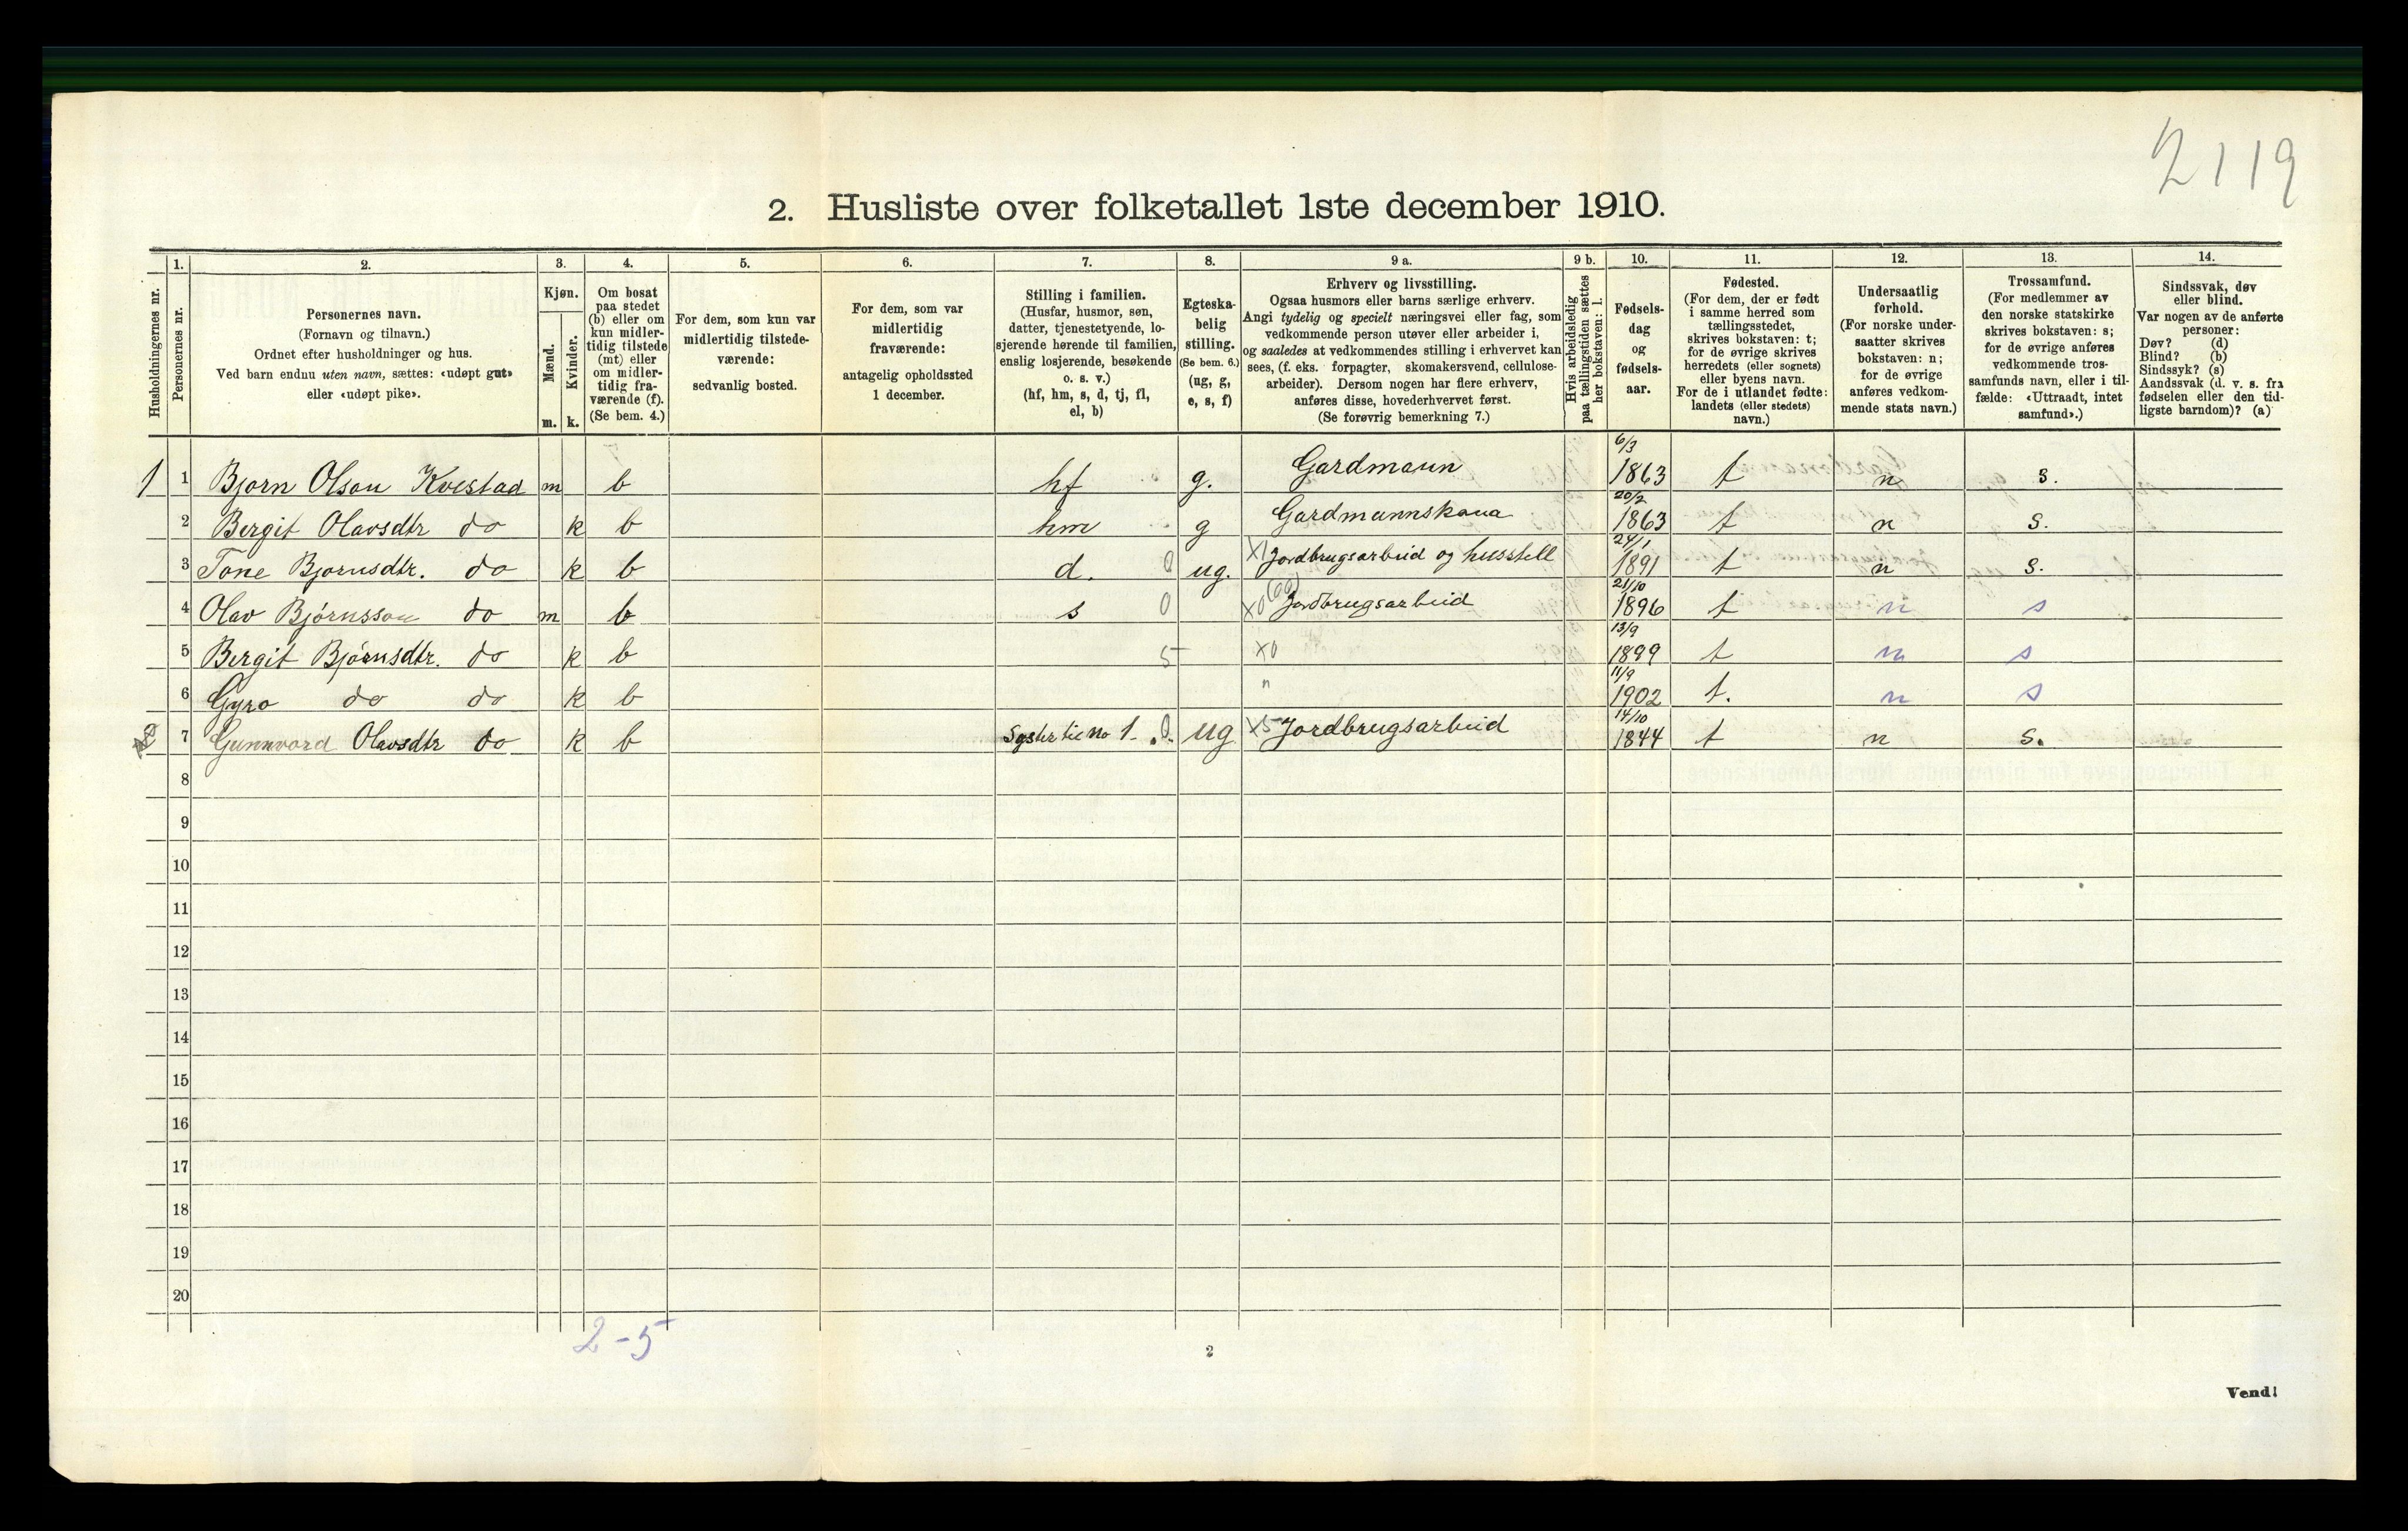 2119
2. Husliste over folketallet 1ste december 1910.
Husholdningernes nr.
1.
Personernes nr.
2.
Personernes navn.
(Fornavn og tilnavn.)
Ordnet efter husholdninger og hus.
Ved barn endnu uten navn, sættes: «udøpt gut»
eller «udøpt pike».
3.
Kjøn.
Mænd.
Kvinder.
m. k.
4.
Om bosat
paa stedet
(b) eller om
kun midler-
tidig tilstede
(mt) eller
om midler-
tidig fra-
værende (f).
(Se bem. 4.)
5.
For dem, som kun var
midlertidig tilstede-
værende:
sedvanlig bosted.
6.
For dem, som var
midlertidig
fraværende:
antagelig opholdssted
1 december.
7.
Stilling i familien.
(Husfar, husmor, søn,
datter, tjenestetyende, lo-
sjerende hørende til familien,
enslig losjerende, besøkende
o. s. v.)
(hf, hm, s, d, tj, fl,
el, b)
8.
Egteska-
belig
stilling.
(Se bem. 6.)
(ug, g,
e, s, f)
9 a.
Erhverv og livsstilling.
Ogsaa husmors eller barns særlige erhverv.
Angi tydelig og specielt næringsvei eller fag, som
vedkommende person utøver eller arbeider i,
og saaledes at vedkommendes stilling i erhvervet kan
sees, (f. eks. forpagter, skomakersvend, cellulose-
arbeider). Dersom nogen har flere erhverv,
anføres disse, hovederhvervet først.
(Se forøvrig bemerkning 7.)
9 b.
Hvis arbeidsledig
paa tællingstiden sættes
her bokstaven: l.
10.
Fødsels-
dag
og
fødsels-
aar.
11.
Fødested.
(For dem, der er født
i samme herred som
tællingsstedet,
skrives bokstaven: t;
for de øvrige skrives
herredets (eller sognets)
eller byens navn.
For de i utlandet fødte:
landets (eller stedets)
navn.)
12.
Undersaatlig
forhold.
(For norske under-
saatter skrives
bokstaven: n;
for de øvrige
anføres vedkom-
mende stats navn.)
13.
Trossamfund.
(For medlemmer av
den norske statskirke
skrives bokstaven: s;
for de øvrige anføres
vedkommende tros-
samfunds navn, eller i til-
fælde: «Uttraadt, intet
samfund».)
14.
Sindssvak, døv
eller blind.
Var nogen av de anførte
personer:
Døv? (d)
Blind? (b)
Sindssyk? (s)
Aandssvak (d. v. s. fra
fødselen eller den tid-
ligste barndom)? (a)
1 1 Bjorn Olson Kvestad m b hf g. Gardmann 6/3 1863 t n s.
2 Bergit Olavsdtr do k b hm g Gardmannskona 20/2 1863 t n s.
3 Tone Bjornsdtr. do k b d. 0 ug. X1 Jordbrugsarbeid og husstell 24/1 1891 t n s.
4 Olav Bjórnsson do m b s 0 X0 Jordbrugsarbeid 21/10 1896 t n s
5 Bergit Bjórnsdtr. do k b 5 X0 13/9 1899 t n s
6 Gyro do do k b n 11/9 1902 t. n s
7 Gunnvord Olavsdtr do k b Syster til No 1. 0. ug X5 Jordbrugsarbeid 14/10 1844 t n s.
8
9
10
11
12
13
14
15
16
17
18
19
20
2-5
2
Vend!